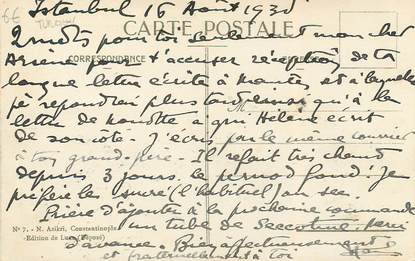 6€
TURQUIE
Istanbul 16 Août 1930
CARTE POSTALE
2 mots pour toi seulement mon cher
CORRESPONDANCE
pour t'accuser réception de ta
longue lettre écrite à Mantes et à laquelle
je répondrai plus tard ainsi qu'à la
lettre de que Hélène écrit
de son côté. J'écris par le même courrier
à ton grand-père. Il refait très chaud
depuis 3 jours. le pernod fond! Je
préfère les sucre (l'habituel) au sec.
Prière d'ajouter à la prochaine commande
un tube de Seccotine. Merci
d'avance. Bien affectueusement
et fraternellement à toi
N° 7. - N. Azikri, Constantinople
Edition de Luxe (Déposé)